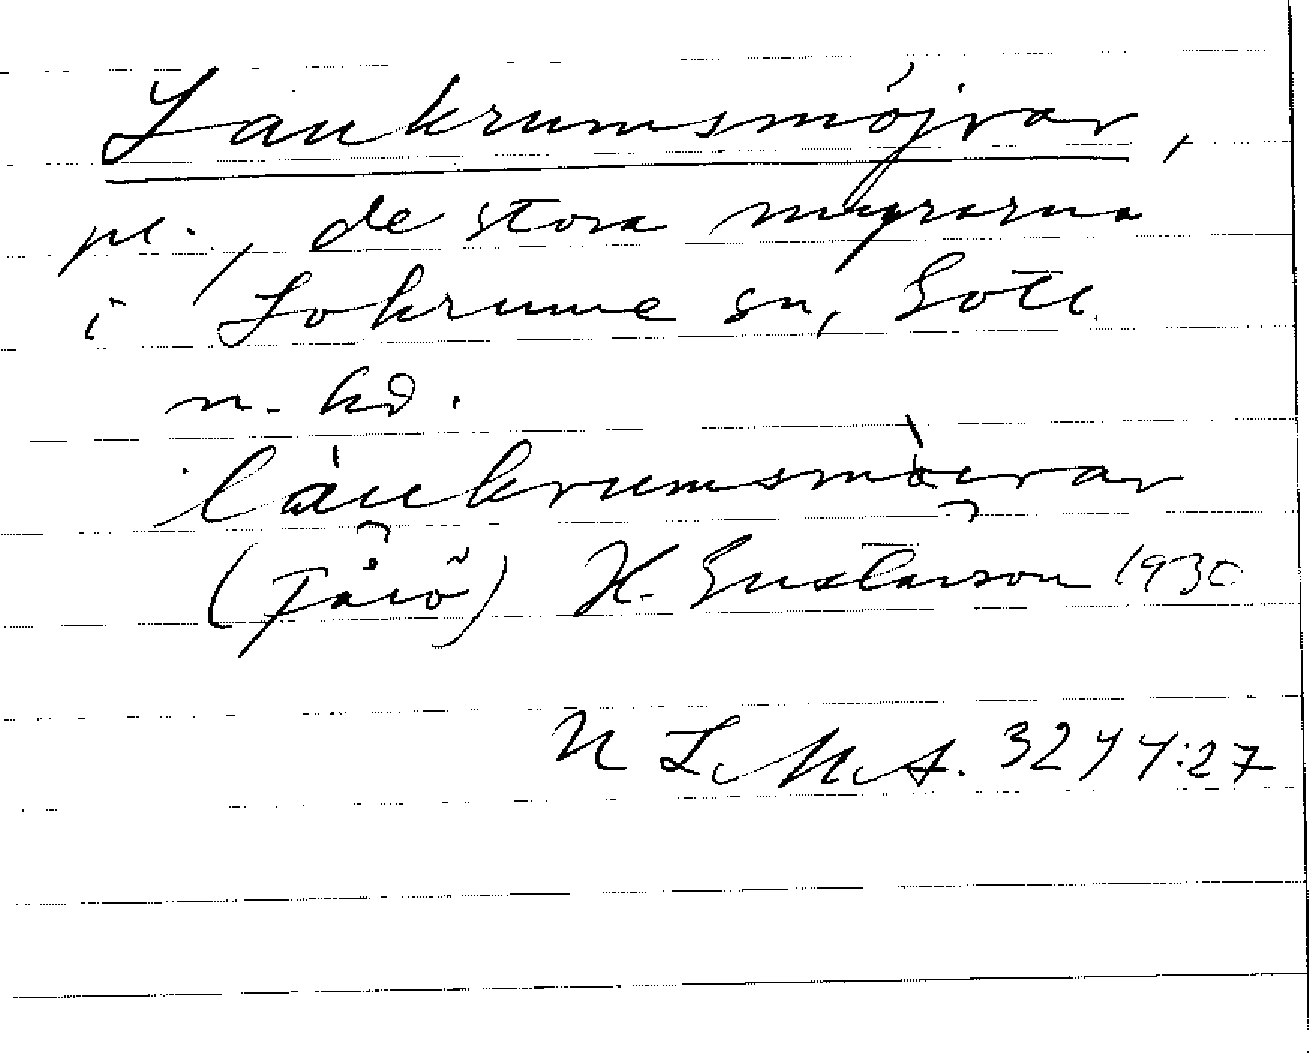 Laukrumsmöjrar,
pl., de stora myrarna
i Lokrume sn, Gotl
n. hd.
làu̯krumsmòi̯rar
(Fårö) H. Gustavson 1930
ULMA. 3244:27